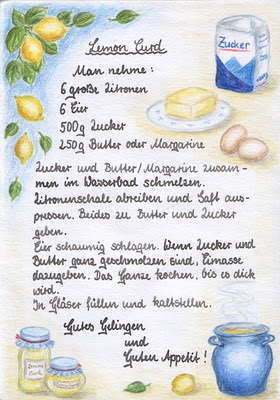 Lemon Curd
Zucker
Man nehme:
6 große Zitronen
6 Eier
500g Zucker
250g Butter oder Margarine
Zucker und Butter/Margarine zusam-
men im Wasserbad schmelzen.
Zitronenschale abreiben und Saft aus-
pressen. Beides zu Butter und Zucker
geben.
Eier schaumig schlagen. Wenn Zucker und
Butter ganz geschmolzen sind, Eimasse
dazugeben. Das Ganze kochen, bis es dick
wird.
In Gläser füllen und kaltstellen.
Gutes Gelingen
und
Guten Appetit!
Lemon
Curd